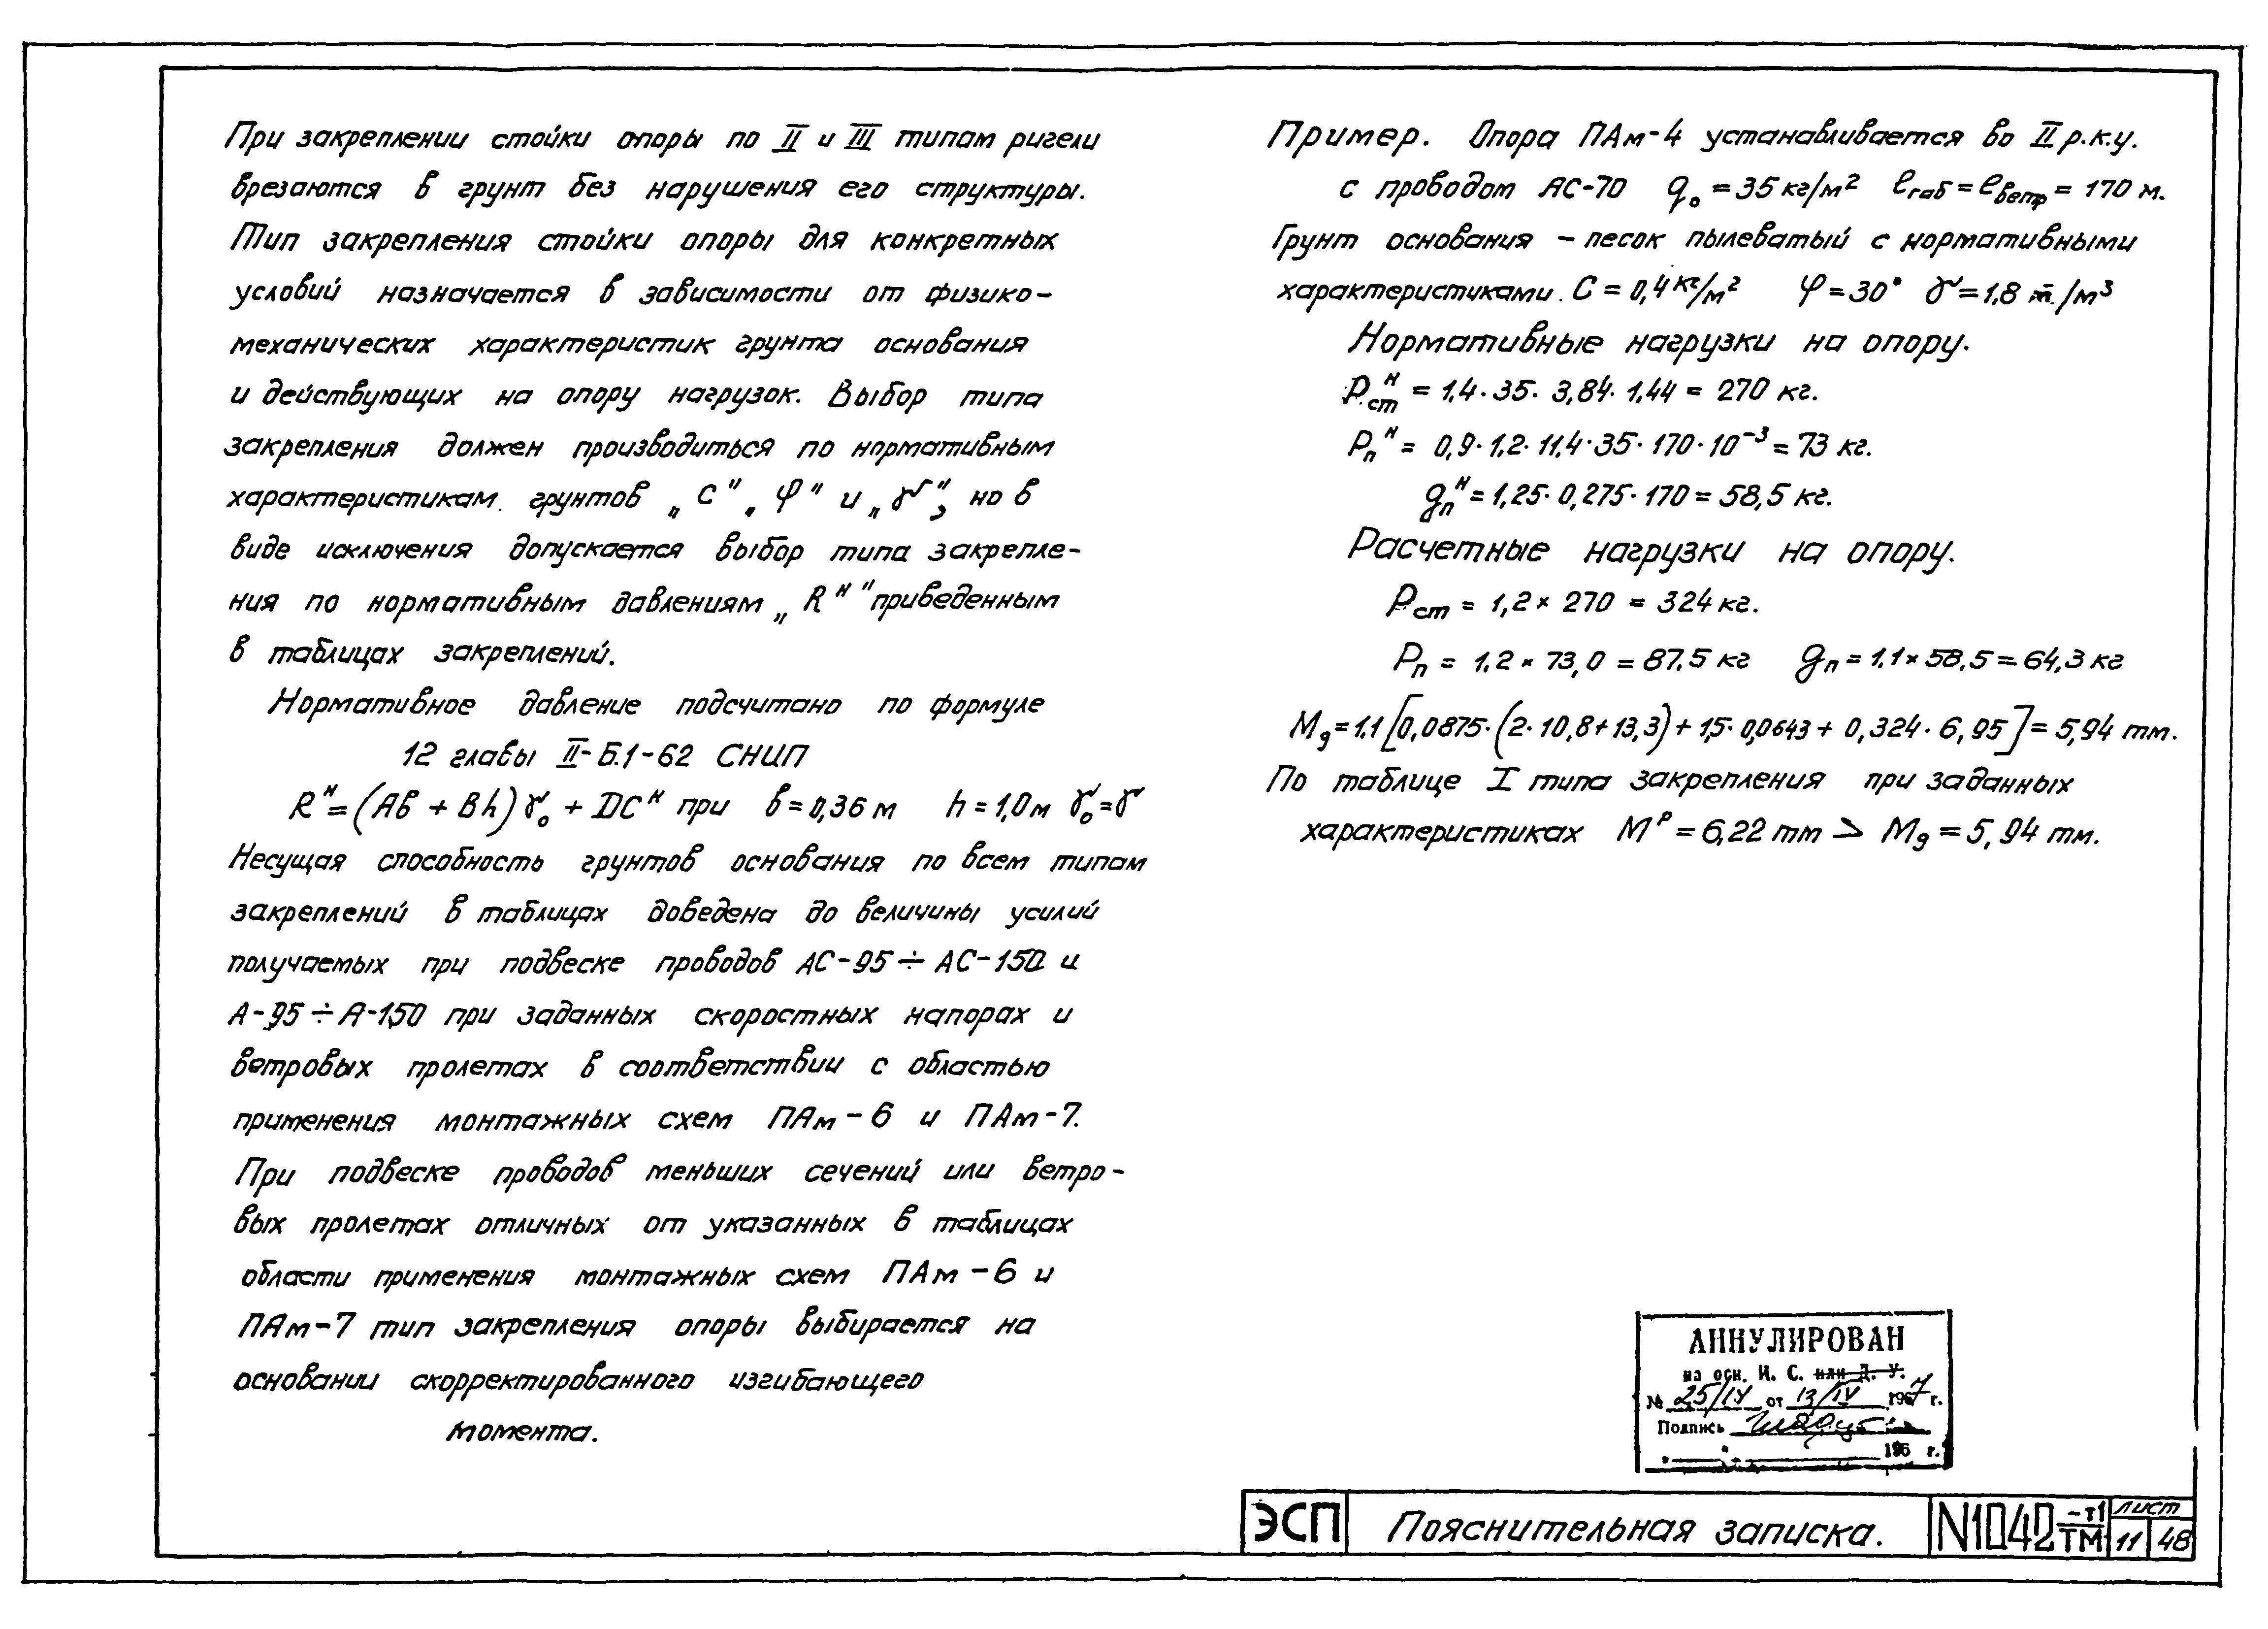 При закреплении стойки опоры по II и III типам ригели
врезаются в грунт без нарушения его структуры.
Тип закрепления стойки опоры для конкретных
условий назначается в зависимости от физико-
механических характеристик грунта основания
и действующих на опору нагрузок. Выбор типа
закрепления должен производиться по нормативным
характеристикам грунтов „С" „φ" и „γ", но в
виде исключения допускается выбор типа закрепле-
ния по нормативным давлениям „Rᴴ" приведенным
в таблицах закреплений.
Нормативное давление подсчитано по формуле
12 главы II-Б.1-62 СНИП
Rᴴ=(Aв + Bh)γ₀ + DCᴴ при в=0,36 м h=1,0м γ₀=γ
Несущая способность грунтов основания по всем типам
закреплений в таблицах доведена до величины усилий
получаемых при подвеске проводов АС-95÷АС-150 и
А-95÷А-150 при заданных скоростных напорах и
ветровых пролетах в соответствии с областью
применения монтажных схем ПАм-6 и ПАм-7.
При подвеске проводов меньших сечений или ветро-
вых пролетах отличных от указанных в таблицах
области применения монтажных схем ПАм-6 и
ПАм-7 тип закрепления опоры выбирается на
основании скорректированного изгибающего
момента.
Пример. Опора ПАм-4 устанавливается во II р.к.у.
с проводом АС-70 q₀=35 кг/м² ℓгаб=ℓветр=170 м.
Грунт основания - песок пылеватый с нормативными
характеристиками. С=0,4 кг/м² φ=30° γ=1,8 т/м³
Нормативные нагрузки на опору.
Pстᴴ = 1,4·35·3,84·1,44 = 270 кг.
Pпᴴ = 0,9·1,2·11,4·35·170·10⁻³ = 73 кг.
gпᴴ = 1,25·0,275·170 = 58,5 кг.
Расчетные нагрузки на опору.
Pст = 1,2 × 270 = 324 кг.
Pп = 1,2 × 73,0 = 87,5 кг gп = 1,1 × 58,5 = 64,3 кг
Mg = 1,1[0,0875·(2·10,8+13,3)+1,5·0,0643+0,324·6,95] = 5,94 тм.
По таблице I типа закрепления при заданных
характеристиках Mᴾ = 6,22 тм > Mg = 5,94 тм.
АННУЛИРОВАН
на осн. И. С. или Д. У.
№ 25/IV от 13/IV 1967 г.
Подпись
196 г.
ЭСП Пояснительная записка. N1042 -т1/ТМ лист 11 48